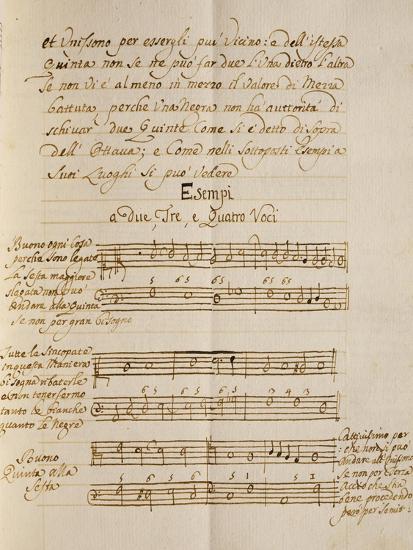 et Unissono per essergli piu' Vicino: e dell'istessa
Quinta non se ne può far due l'una dietro l'altra
se non vi è al meno in mezzo il Valore di Mezza
battuta, perche Una Negra non ha auttorità di
schivar due Quinte Come si è detto di sopra
dell'Ottava; e Come nelli sottoposti Esempi a
Suoi Luoghi si può Vedere
Esempi
a due, Tre, e Quatro Voci
Buono ogni Cosa
perche sono legate
la Sesta maggiore
slegata non può
andare alla Quinta
se non per gran bisogno
5 6 5 6 5 6 5
Tutte le Sincopate
in questa Maniera
bisogna ribatterle
e non tener fermo
tanto le bianche
quanto le Negre
6 5 6 5 6 5 3 4 3
Buono
Quinta alla
Sesta
5 6 5 6 5 1
Cattivissimo per
che non si può
andare all'Unissono
se non per terza